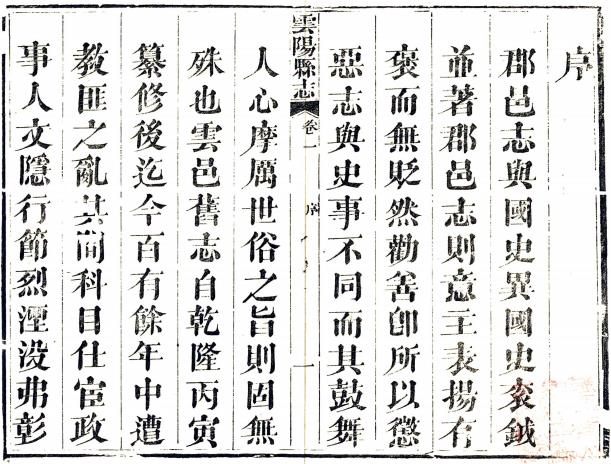 序
郡邑志與國史異國史袞鉞
並著郡邑志則意主表揚有
褒而無貶然勸善卽所以懲
惡志與史事不同而其鼓舞
雲陽縣志
卷一
序
一
人心摩厲世俗之旨則固無
殊也雲邑舊志自乾隆丙寅
纂修後迄今百有餘年中遭
教匪之亂其間科目仕宦政
事人文隱行節烈湮没弗彰